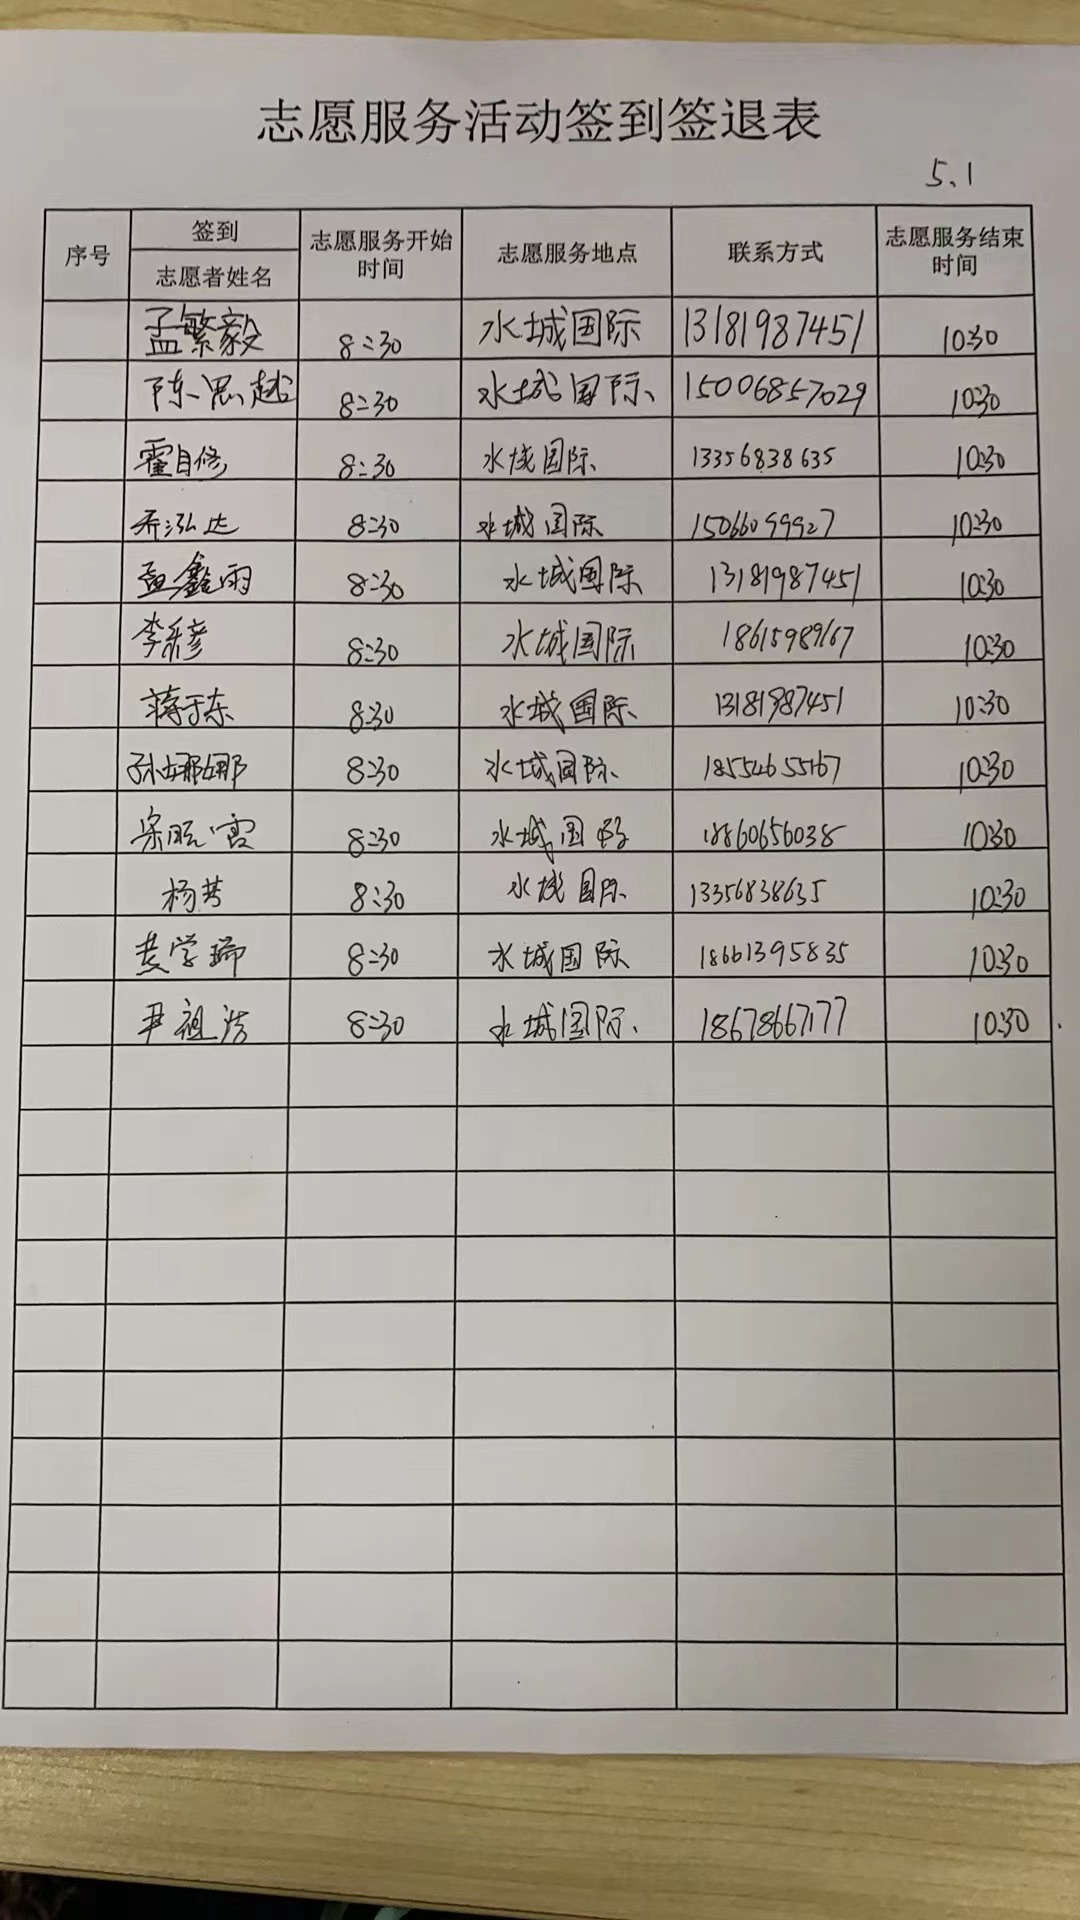 志愿服务活动签到签退表
5.1
序号 签到 志愿者姓名 志愿服务开始时间 志愿服务地点 联系方式 志愿服务结束时间
孟繁毅 8:30 水城国际 13181987451 10:30
陈思越 8:30 水城国际 15006857029 10:30
霍自修 8:30 水城国际 13356838635 10:30
乔泓达 8:30 水城国际 15066099927 10:30
孟鑫雨 8:30 水城国际 13181987451 10:30
李彩彦 8:30 水城国际 18615989167 10:30
蒋于东 8:30 水城国际 13181987451 10:30
孙娜娜 8:30 水城国际 18554655167 10:30
8:30 水城国际 18860656038 10:30
杨芳 8:30 水城国际 13356838635 10:30
黄学瑞 8:30 水城国际 18661395835 10:30
尹祖浩 8:30 水城国际 18678667177 10:30